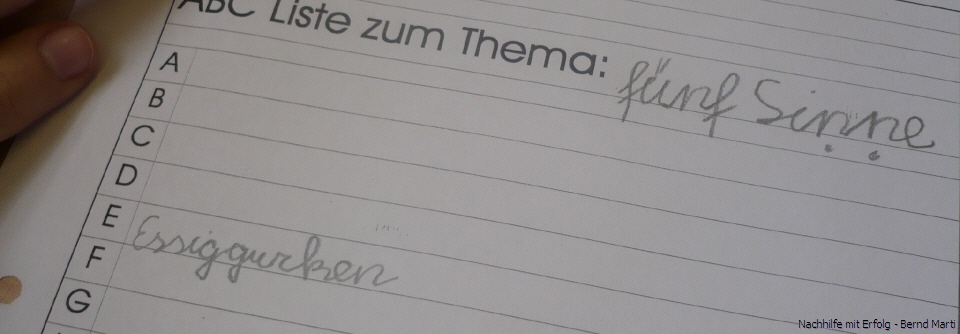 ABC Liste zum Thema: fünf Sinne
A
B
C
D
E Essiggurken
F
G
Nachhilfe mit Erfolg - Bernd Marti